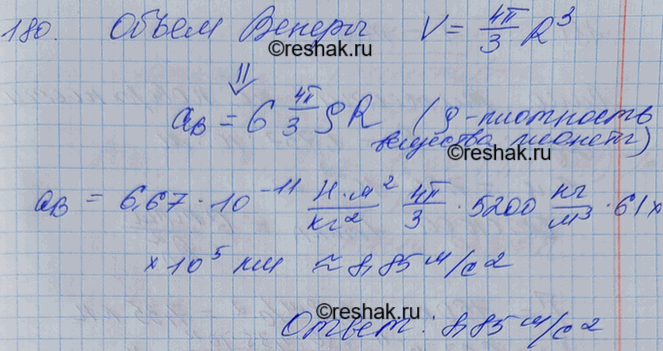 180. Объем Венеры V = 4π/3 R³
reshak.ru
⇓
aв = G 4π/3 ρR (ρ - плотность
вещества планеты)
reshak.ru
aв = 6,67 · 10⁻¹¹ Н·м²/кг² 4π/3 · 5200 кг/м³ · 61 ×
× 10⁵ км ≈ 8,85 м/с²
reshak.ru
Ответ: 8,85 м/с²